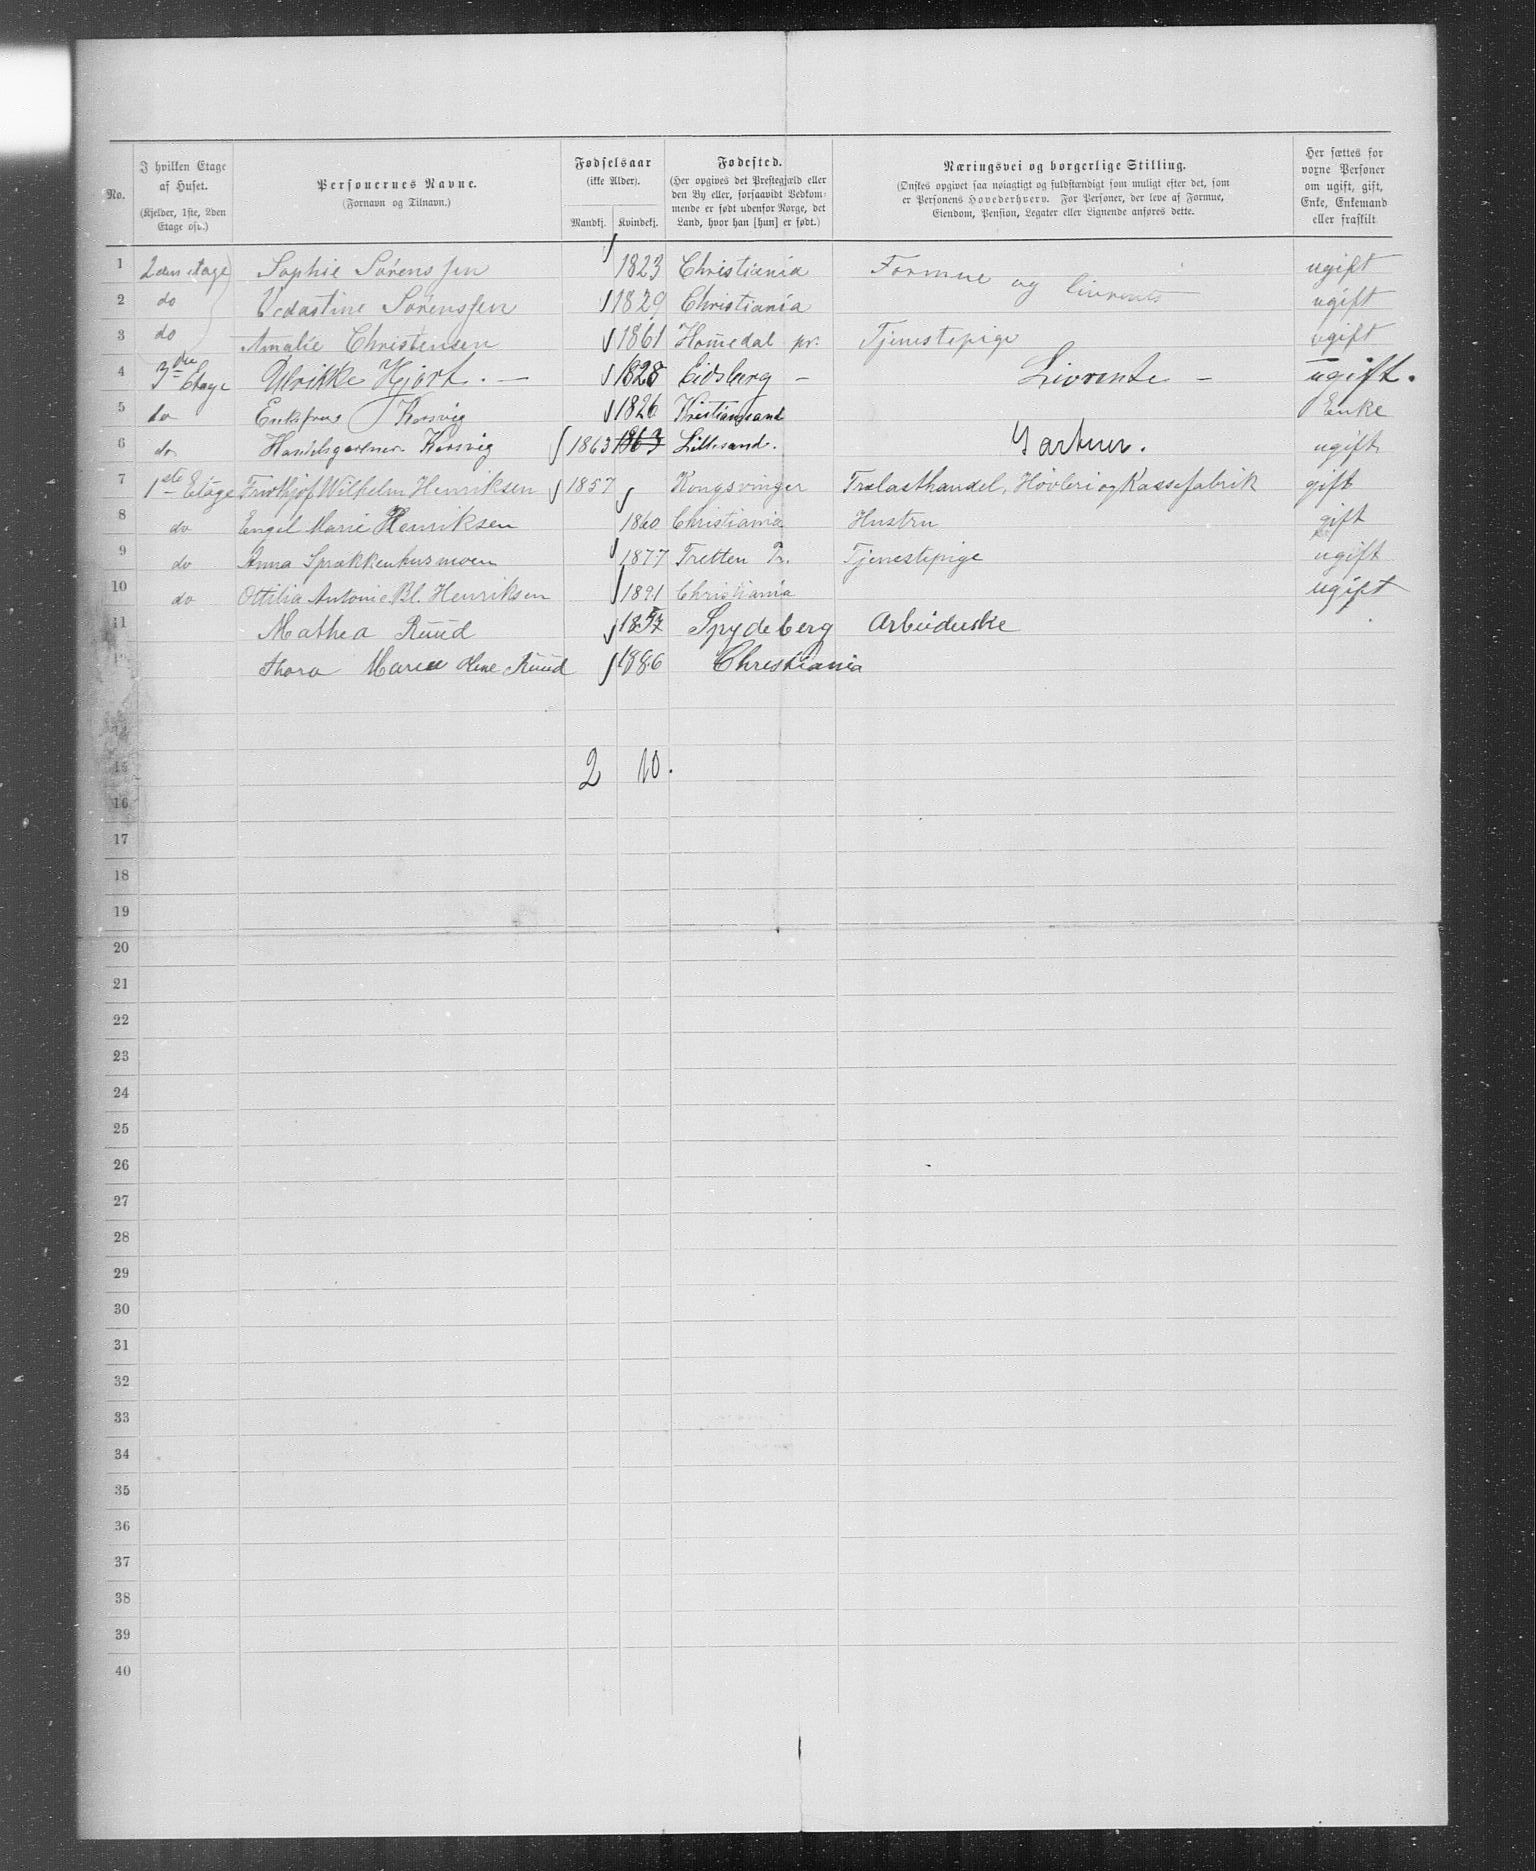 No. | I hvilken Etage af Huset. (Kjelder, 1ste, 2den Etage osv.) | Personernes Navne. (Fornavn og Tilnavn.) | Fødselsaar (ikke Alder). Mandkj. | Kvindekj. | Fødested. (Her opgives det Prestegjæld eller den By eller, forsaavidt Vedkommende er født udenfor Norge, det Land, hvor han [hun] er født.) | Næringsvei og borgerlige Stilling. (Ønskes opgivet saa nøiagtigt og fuldstændigt som muligt efter det, som er Personens Hovederhverv. For Personer, der leve af Formue, Eiendom, Pension, Legater eller Lignende anføres dette. | Her sættes for voxne Personer om ugift, gift, Enke, Enkemand eller fraskilt
1 | 2den etage | Sophie Sørenssen | 1823 | Christiania | Formue og livrente | ugift
2 | do | Vedastine Sørenssen | 1829 | Christiania | ugift
3 | do | Amalie Christensen | 1861 | Hommedal pr. | Tjenestepige | ugift
4 | 3die Etage | Ulrikke Hjort. — | 1828 | Eidsberg – | Livrente – | ugift.
5 | do | Enkefrue Korsvig | 1826 | Kristiansand | Enke
6 | do | Handelsgartner Korsvig | 1863 | 1863 | Lillesand. | Gartner. | ugift
7 | 1ste Etage | Frithjof Wilhelm Henriksen | 1857 | Kongsvinger | Trælasthandel, Høvleri og Kassefabrik | gift
8 | do | Engel Marie Henriksen | 1860 | Christiania | Hustru | gift
9 | do | Anna Sprækkenhusmoen | 1877 | Tretten Pr. | Tjenestepige | ugift
10 | do | Ottilia Antonie Bl. Henriksen | 1891 | Christiania | ugift
11 | Mathea Ruud | 1857 | Spydeberg | Arbeiderske
Thora Marie Oline Ruud | 1886 | Christiania
14
15 | 2 | 10.
16
17
18
19
20
21
22
23
24
25
26
27
28
29
30
31
32
33
34
35
36
37
38
39
40